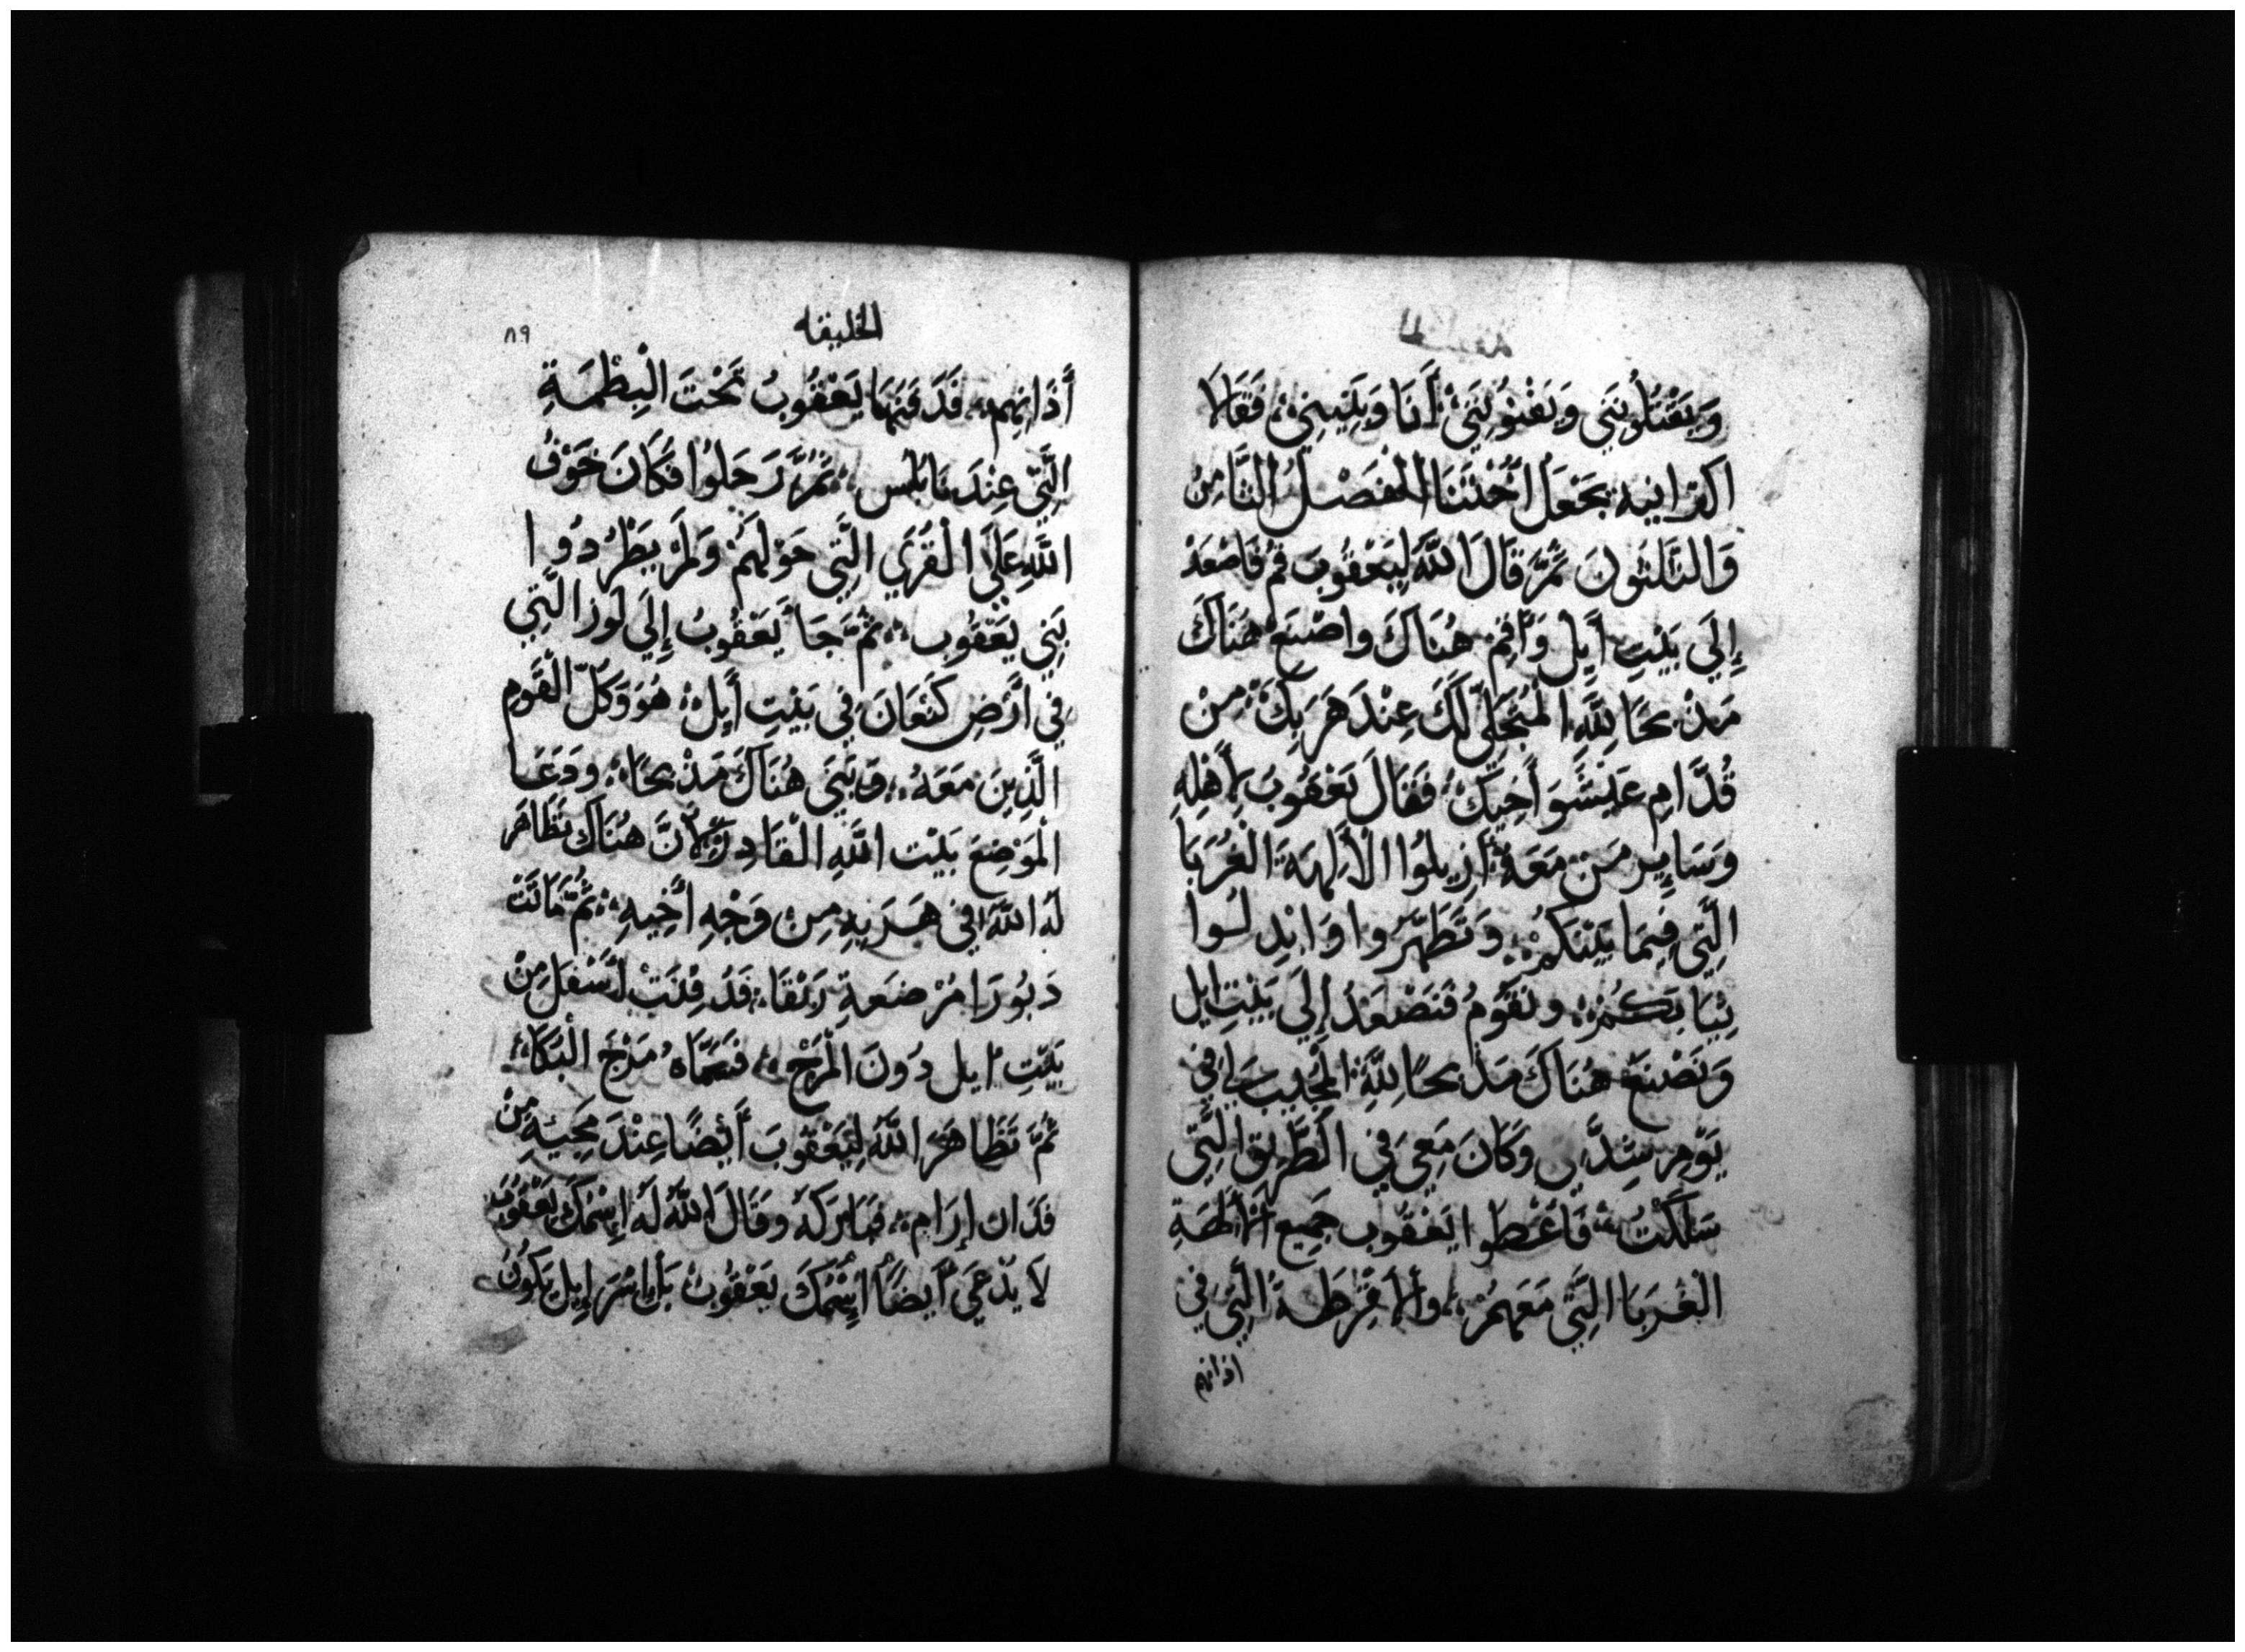 وَيَقْتُلُونَنِي وَيَفْنُونَنِي أَنَا وَبَيْتِي فَقَالَا
اكزانيه نجْعَل أُخْتَنَا الفصْلُ الثَّامِنُ
وَالثَّلثُونَ ثُمَّ قَالَ اللَّهُ لِيَعْقُوبَ قُمْ فَاصْعَدْ
إِلَى بَيْتِ أَيِل وَأَقِمْ هُنَاكَ واصْنَعْ هُنَاكَ
مَذْبَحًا لِلَّهِ الْمُتَجَلِّي لَكَ عِنْدَ هَرَبِكَ مِنْ
قُدَّامِ عَيْسُوَ أَخِيكَ فَقَالَ يَعْقُوبَ لِأَهْلِهِ
وَسَايِرِ مَنْ مَعَهُ أَزِيلُوا الْأَلِهَةَ الْغُرَبَا
الَّتِي فِيمَا بَيْنَكُمْ وَتَطَهَّرُوا وَابْدِلُوا
ثِيَابَكُمْ وَنَقُومُ فَنَصْعَدُ إِلَى بَيْتِ ايل
وَنَصْنَعُ هُنَاكَ مَذْبَحًا لِلَّهِ الْمُجِيبِ لِي فِي
يَوْمِ شِدَّتِي وَكَانَ مَعِي فِي الطَّرِيقِ الَّتِي
سَلَكْتُ فَاعْطوا يَعْقُوب جَمِيعَ الْأَلِهَةِ
الْغُرَبَا الَّتِي مَعَهُمْ وَالأَقْرِطَةَ الَّتِي فِي
اذانهم
الخليقه
٨٩
أَذَانِهِمْ فَدَفَنَهَا يَعْقُوبُ تَحْتَ الْبِطْمَةِ
الَّتِي عِنْدَ نَابُلس ثُمَّ رَحَلُوا فَكَانَ خَوْفُ
اللَّهِ عَلَى الْقُرَي الَّتِي حَوْلَهُمْ وَلَمْ يَطْرُدُوا
بَنِي يَعْقُوب ثُمَّ جَا يَعْقُوبُ إِلَى لَوز الَّتِي
فِي أَرْضِ كَنْعَانَ فِي بَيْتِ أَيِل هُوَ وَكُلّ الْقَوم
الَّذِينَ مَعَهُ وَابْتَنَى هُنَاكَ مَذْبَحًا وَدَعَا
الْمَوْضِعَ بَيْت اللَّهِ الْقَادِر لِأَنَّ هُنَاكَ تَظَاهَر
لَهُ اللَّهُ فِي هَرَبِهِ مِنْ وَجْهِ أَخِيهِ ثُمَّ مَاتَتْ
دَبُورَا مُرْضَعَةِ رَبْقَا فَدُفِنَتْ أَسْفَل مِنْ
بَيْتِ ايل دُونَ الْمَرْجِ فَسَمَّاهُ مَرْجَ الْبُكَاء
ثُمَّ تَظَاهَرَ اللَّهُ لِيَعْقُوبَ أَيْضًا عِنْدَ مَجِيَّهِ مِنْ
فَدَان إِرَام فَبَارَكَهُ وَقَالَ اللَّهُ لَهُ إِسْمُكَ يَعْقُوب
لَا يُدْعَى أَيضًا اسْمُكَ يَعْقُوبُ بَلْ إِسْرَإِيل يَكُونُ